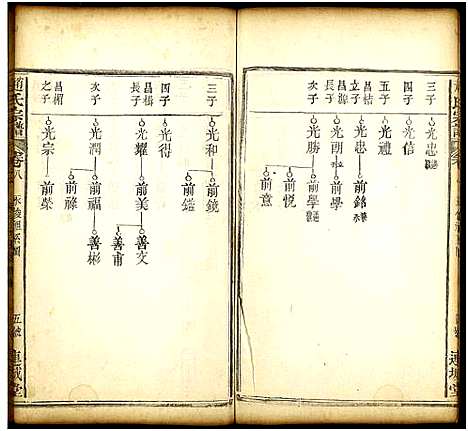 三子
光忠
四子
光信
五子
光禮
昌桔
長子
光忠
前銘
昌源
長子
光朗
前學
次子
光勝
前學
前悅
前意
三子
光和
前鏡
前鐙
四子
光得
昌楫
長子
光耀
前美
善文
善甫
次子
光潤
前福
善彬
前祿
昌楣
之子
光宗
前榮
趙氏宗譜
卷八
五號
連城堂
連城堂